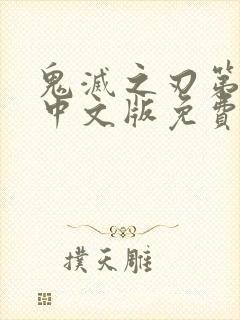 鬼滅之刃第
中文版免費
撲天雕